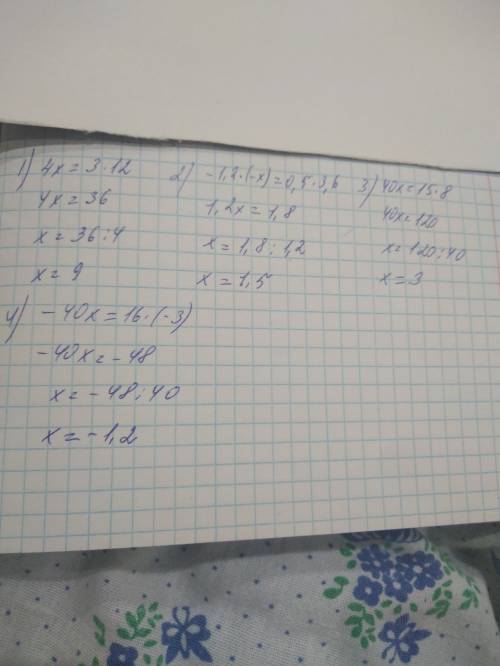 1) 4x = 3·12
4x = 36
x = 36:4
x = 9
2) -1,2·(-x) = 0,5·3,6
1,2x = 1,8
x = 1,8:1,2
x = 1,5
3) 40x = 15·8
40x = 120
x = 120:40
x = 3
4) -40x = 16·(-3)
-40x = -48
x = -48:40
x = -1,2